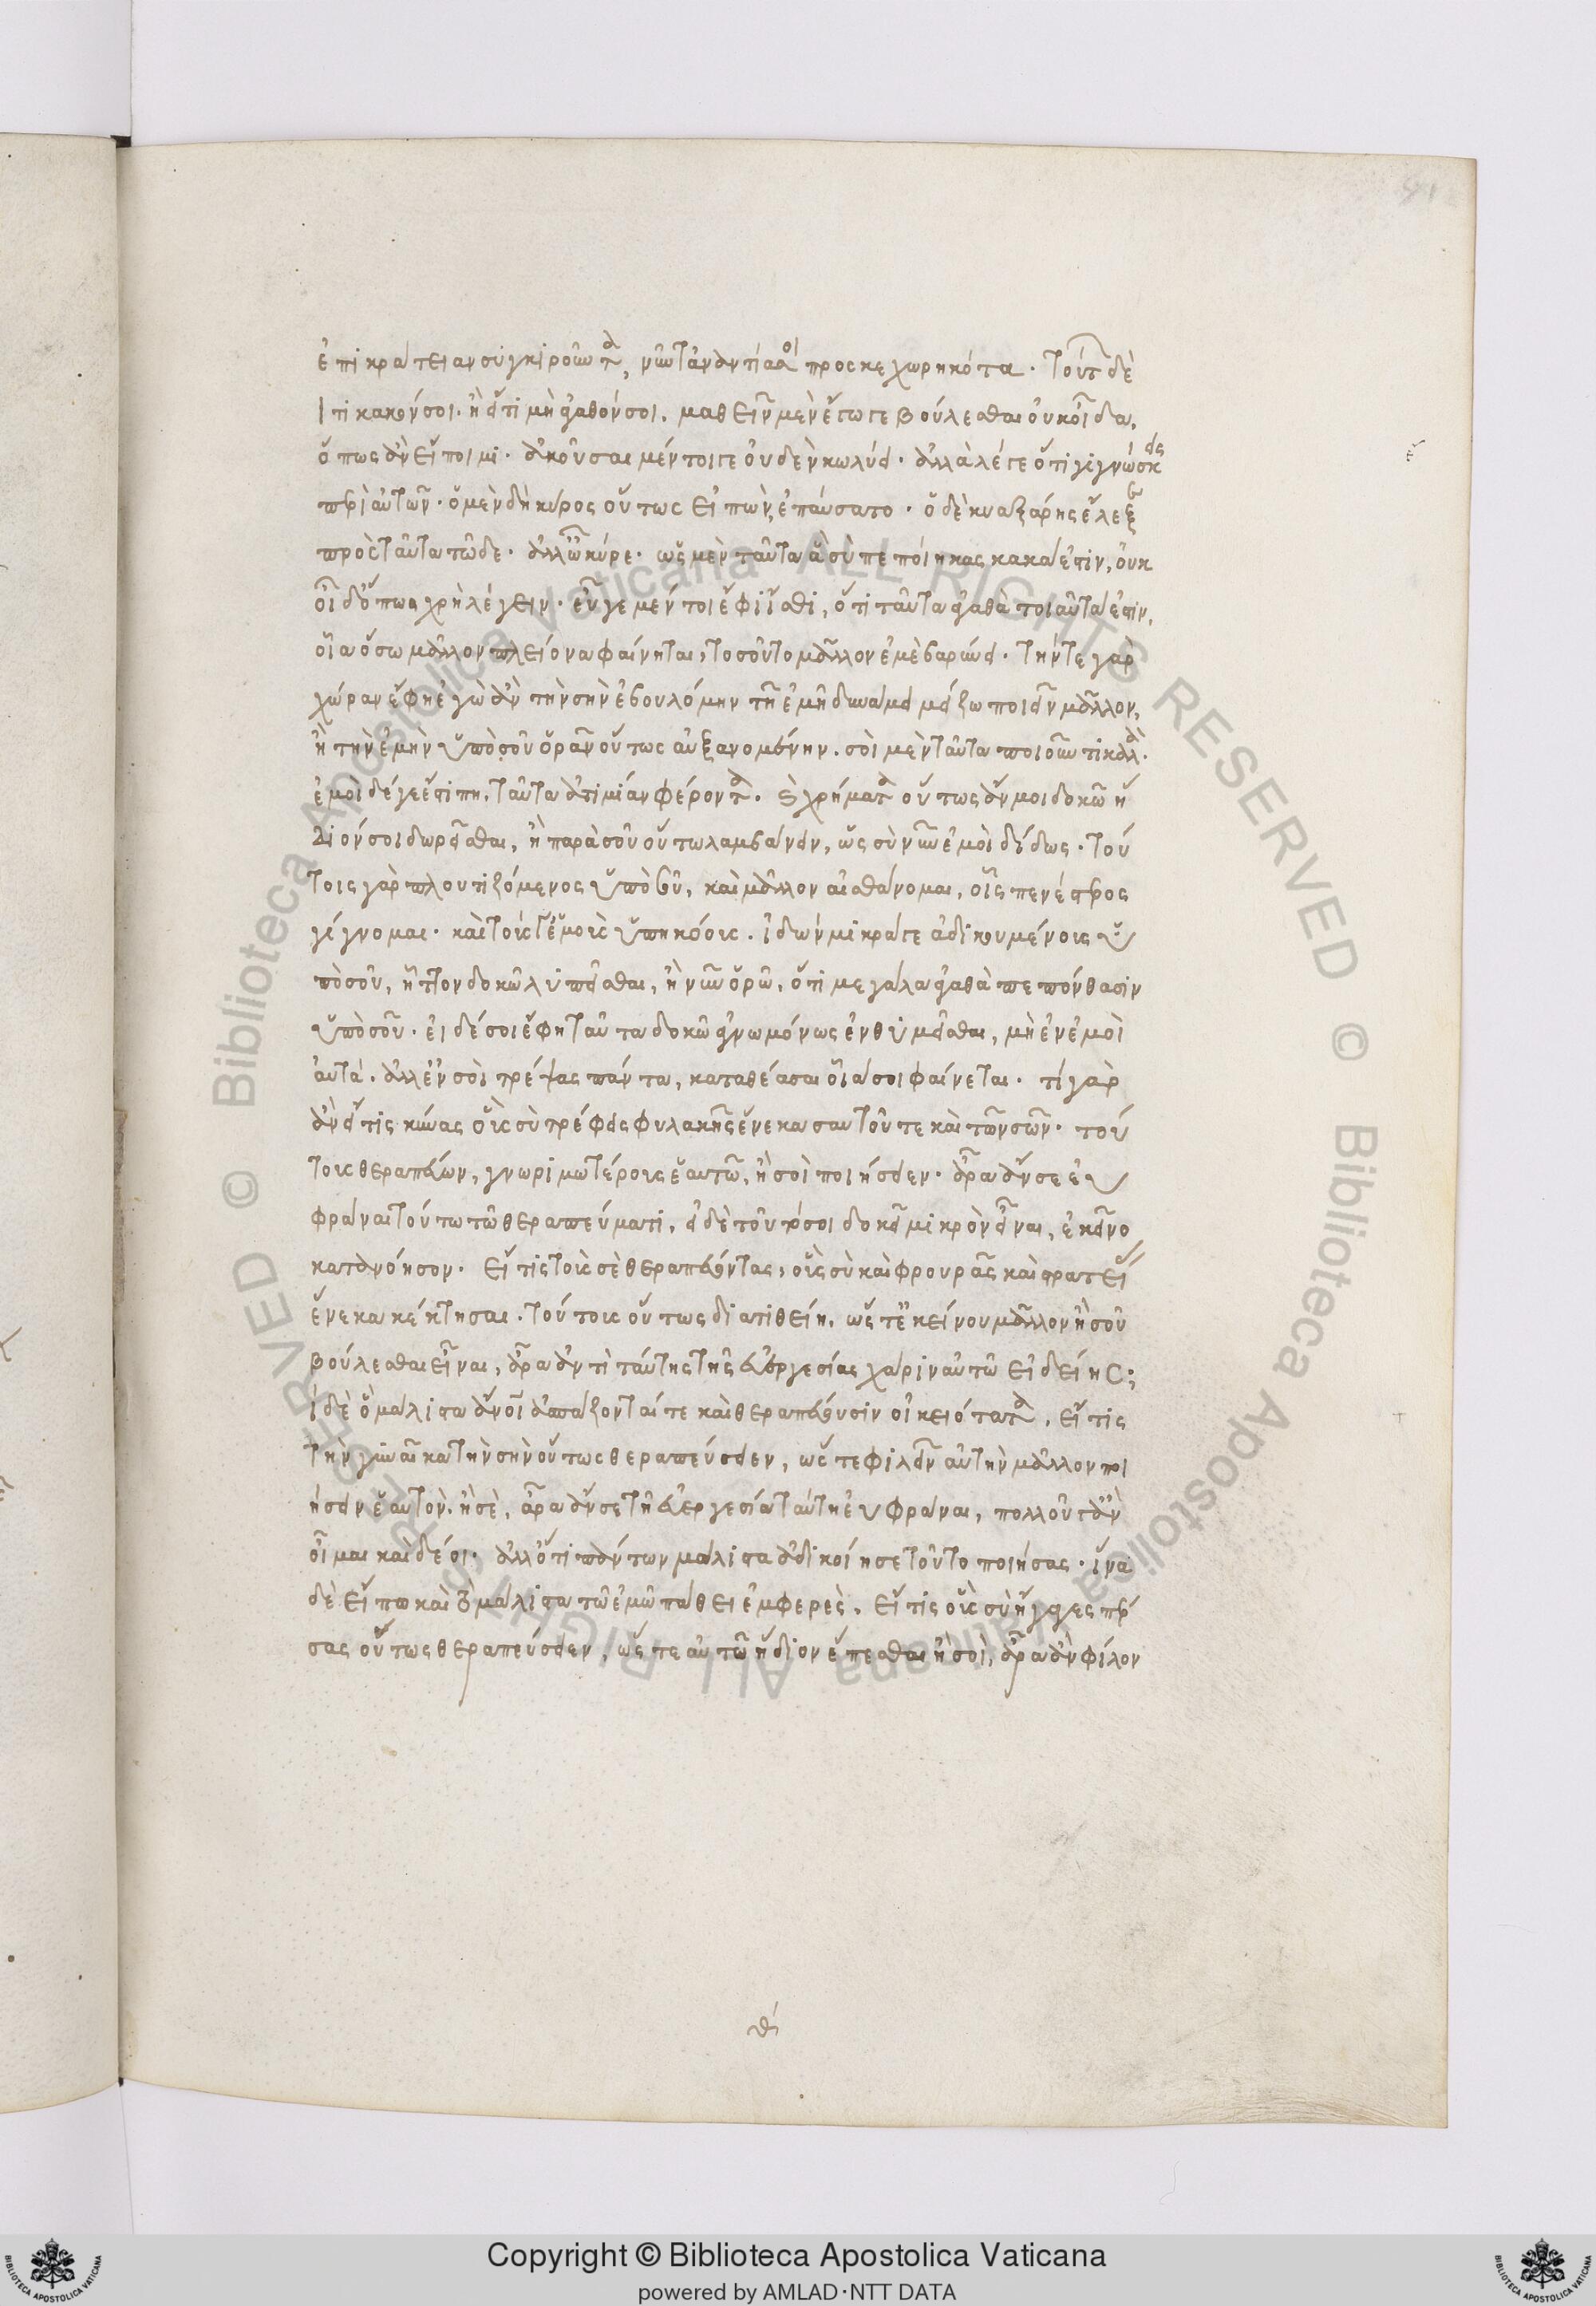 ἐπικράτειαν συγκυροῦντα, νῦν τἀναντία σοι προσκεχωρηκότα. τούτων δὲ
τι κακόν σοι. ἢ ἔστι μὴ ἀγαθόν σοι. μαθεῖν μὲν ἔγωγε βούλεσθαι οὐκ οἶδα,
ὅπως ἂν εἴποιμι. ἀκοῦσαι μέντοι γε οὐδὲν κωλύει. ἀλλὰ λέγε ὅτι γιγνώσκεις
περὶ αὐτῶν. ὁ μὲν δὴ κύρος οὕτως εἰπὼν, ἐπαύσατο. ὁ δὲ κυαξάρης ἔλεξε
πρὸς ταῦτα τῶδε. ἀλλ' ὦ κύρε. ὡς μὲν ταῦτα ἃ σὺ πεποίηκας κακά ἐστιν, οὐκ
οἶδ' ὅπως χρὴ λέγειν. εὖ γε μέντοι ἔφη ἴσθι, ὅτι ταῦτα ἀγαθὰ τοιαῦτά ἐστιν,
οἷα ὅσω μᾶλλον πλείονα φαίνηται, τοσοῦτο μᾶλλον ἐμὲ βαρύνει. τήν τε γὰρ
χώραν ἔφη ἐγὼ ἂν τὴν σὴν ἐβουλόμην τῆ ἐμῆ δυνάμει μείζω ποιεῖν μᾶλλον,
ἢ τὴν ἐμὴν ὑπὸ σοῦ ὁρᾶν οὕτως αὐξανομένην. σοὶ μὲν ταῦτα ποιοῦντι καλὰ.
ἐμοὶ δέ γε ἔστι πη, ταῦτα ἀτιμίαν φέροντα. καὶ χρήματα οὕτως ἄν μοι δοκῶ ἥ
διόν σοι δωρεῖσθαι, ἢ παρὰ σοῦ οὕτω λαμβάνειν, ὡς σὺ νῦν ἐμοὶ δίδως. τού
τοις γὰρ πλουτιζόμενος ὑπὸ σοῦ, καὶ μᾶλλον αἰσθάνομαι, οἷς πενέστερος
γίγνομαι. καὶ τοίς γ' ἐμοῖς ὑπηκόοις. ἰδών μικρά γε ἀδικουμένοις ὑ
πὸ σοῦ, ἧττον δοκῶ λυπεῖσθαι, ἢ νῦν ὁρῶ, ὅτι μεγάλα ἀγαθὰ πεπόνθασιν
ὑπὸ σοῦ. εἰ δέ σοι ἔφη ταῦτα δοκῶ ἀγνωμόνως ἐνθυμεῖσθαι, μὴ ἐν ἐμοὶ
αὐτά. ἀλλ' ἐν σοὶ τρέψας πάντα, καταθέασαι οἷά σοι φαίνεται. τί γὰρ
ἂν εἴ τις κύνας οἷς σὺ τρέφεις φυλακῆς ἕνεκα σαυτοῦ τε καὶ τῶν σῶν. τού
τοις θεραπεύων, γνωριμωτέροις ἑαυτῶ, ἢ σοὶ ποιήσειεν. ἆρα ἄν σε εὐ
φράναι τούτω τῶ θεραπεύματι, εἰ δὲ τοῦτό σοι δοκεῖ μικρὸν εἶναι, ἐκεῖνο
κατανόησον. εἴ τις τοὺς σὲ θεραπεύοντας, οἷς σὺ καὶ φρουρᾶς καὶ στρατείας
ἕνεκα κέκτησαι. τούτοις οὕτως διατιθείη. ὥς τ' ἐκείνου μᾶλλον ἢ σοῦ
βούλεσθαι εἶναι, ἆρα ἄν τὶ ταύτης τῆς εὐεργεσίας χάριν αὐτῶ εἰδείης;
ἰδὲ ὃ μάλιστα ἄνοι ἀσπάζονταί τε καὶ θεραπεύουσιν οἰκειότατα, εἴ τις
τὴν γυναῖκα τὴν σὴν οὕτως θεραπεύσειεν, ὥς τε φιλεῖν αὐτὴν μᾶλλον ποι
ήσειν ἑαυτὸν. ἢ σὲ, ἆρα ἄν σε τῆ εὐεργεσία ταύτη εὐφράναι, πολλοῦ γ' ἂν
οἶμαι καὶ δέοι. ἀλλ' ὅτι πάντων μάλιστα ἀδικοίη σε τοῦτο ποιήσας. ἵνα
δὲ εἴπω καὶ ὃ μάλιστα τῶ ἐμῶ πάθει ἐμφερὲς. εἴ τις οἷς σὺ ἤγαγες πέρ
σας οὕτως θεραπεύσειεν, ὥς τε αὐτῶ ἥδιον ἕπεσθαι ἢ σοὶ, ἆρα ἂν φίλον
Copyright © Biblioteca Apostolica Vaticana
powered by AMLAD·NTT DATA